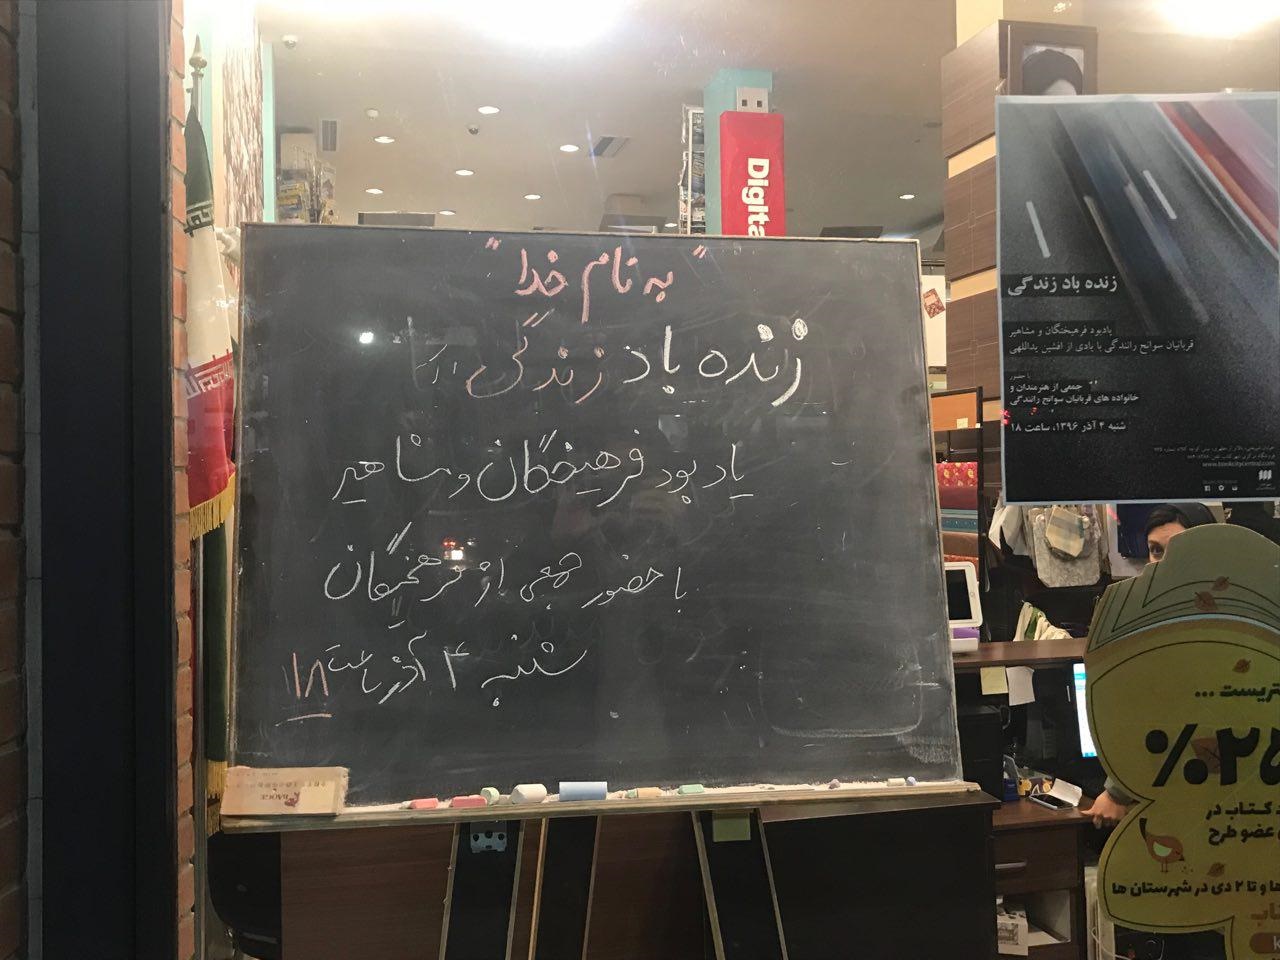 " به نام خدا "
زنده باد زندگی ...
یادبود فرهیختگان و مشاهیر
با حضور جمعی از فرهیختگان
شنبه ۴ آذر ساعت ۱۸
Digita
زنده باد زندگی
یادبود فرهیختگان و مشاهیر
قربانیان سوانح رانندگی با یادی از افشین یداللهی
با حضور
جمعی از هنرمندان و
خانواده های قربانیان سوانح رانندگی
شنبه ۴ آذر ۱۳۹۶، ساعت ۱۸
www.bookcitycentral.com
تریست ...
%۲۵
کتاب در
عضو طرح
ها و تا ۲ دی در شهرستان ها